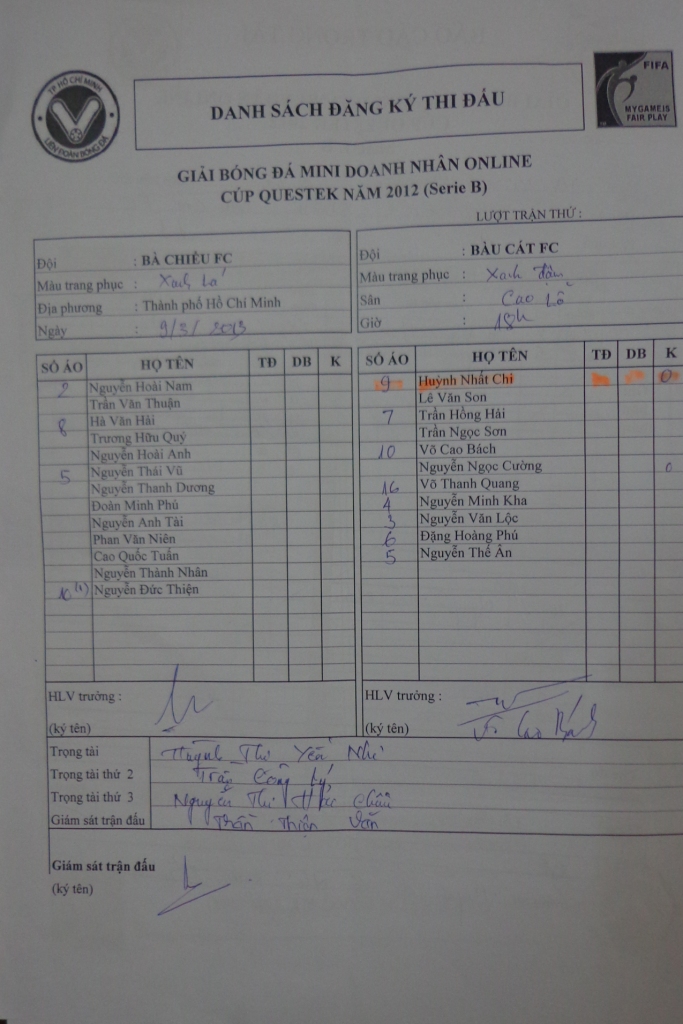 TP HỒ CHÍ MINH
LIÊN ĐOÀN BÓNG ĐÁ
DANH SÁCH ĐĂNG KÝ THI ĐẤU
FIFA
MY GAME IS
FAIR PLAY
GIẢI BÓNG ĐÁ MINI DOANH NHÂN ONLINE
CÚP QUESTEK NĂM 2012 (Serie B)
LƯỢT TRẬN THỨ :
Đội : BÀ CHIỂU FC
Màu trang phục : Xanh lá
Địa phương : Thành phố Hồ Chí Minh
Ngày : 9/3/2013
Đội : BÀU CÁT FC
Màu trang phục : Xanh đậm
Sân : Cao Lỗ
Giờ : 18h
SỐ ÁO HỌ TÊN TĐ DB K
2 Nguyễn Hoài Nam
Trần Văn Thuận
8 Hà Văn Hải
Trương Hữu Quý
Nguyễn Hoài Anh
5 Nguyễn Thái Vũ
Nguyễn Thanh Dương
Đoàn Minh Phú
Nguyễn Anh Tài
Phan Văn Niên
Cao Quốc Tuấn
Nguyễn Thành Nhân
10 (1) Nguyễn Đức Thiện
SỐ ÁO HỌ TÊN TĐ DB K
9 Huỳnh Nhất Chi 0
Lê Văn Son
7 Trần Hồng Hải
Trần Ngọc Sơn
10 Võ Cao Bách
Nguyễn Ngọc Cường 0
16 Võ Thanh Quang
4 Nguyễn Minh Kha
3 Nguyễn Văn Lộc
6 Đặng Hoàng Phú
5 Nguyễn Thế Ân
HLV trưởng :
(ký tên)
HLV trưởng :
(ký tên) Võ Cao Bách
Trọng tài Huỳnh Thị Yến Nhi
Trọng tài thứ 2 Trần Công Lý
Trọng tài thứ 3 Nguyễn Thị Châu
Giám sát trận đấu Trần Thiện Văn
Giám sát trận đấu
(ký tên)